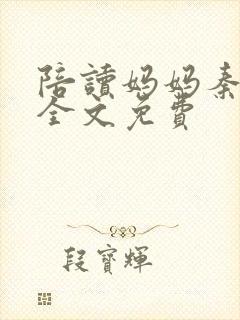 陪讀妈妈秦
全文免費
段寶輝